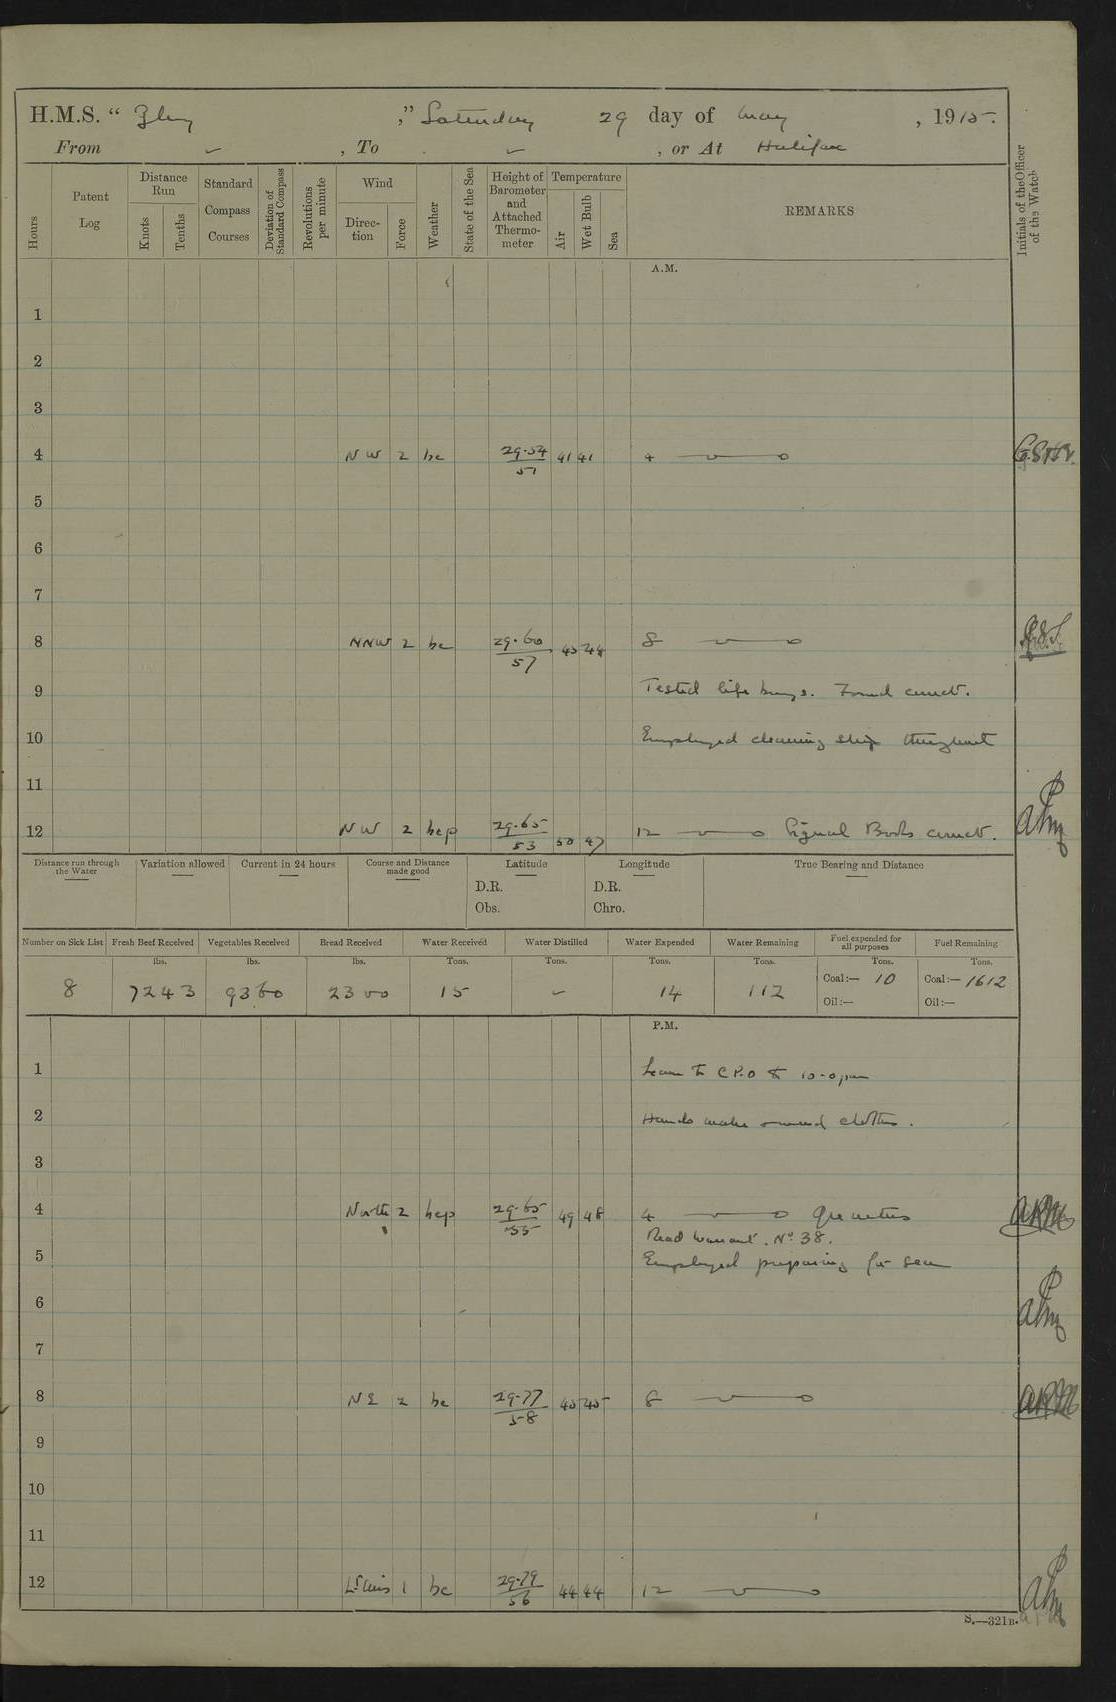 H.M.S. " Glory ," Saturday 29 day of May , 1915.
From ~ , To ~ , or At Halifax
Hours Patent Log Distance Run Knots Tenths Standard Compass Courses Deviation of Standard Compass Revolutions per minute Wind Direc-tion Force Weather State of the Sea Height of Barometer and Attached Thermo-meter Temperature Air Wet Bulb Sea REMARKS Initials of the Officer of the Watch
A.M.
1
2
3
4 NW 2 bc 29.54 57 41 41 4
5
6
7
8 NNW 2 bc 29.60 57 45 44 8
9 Tested life buoys. Found correct.
10 Employed cleaning ship throughout
11
12 NW 2 bcp 29.65 53 50 47 12 Signal Books correct.
Distance run through the Water Variation allowed Current in 24 hours Course and Distance made good Latitude Longitude True Bearing and Distance
D.R. D.R.
Obs. Chro.
Number on Sick List Fresh Beef Received Vegetables Received Bread Received Water Received Water Distilled Water Expended Water Remaining Fuel expended for all purposes Fuel Remaining
lbs. lbs. lbs. Tons. Tons. Tons. Tons. Tons. Tons.
8 7243 9360 2300 15 ~ 14 112 Coal:— 10 Coal:— 1612
Oil:— Oil:—
P.M.
1 Leave to C.P.O to 10-0 pm
2 Hands make & mend clothes.
3
4 North 2 bcp 29.65 55 49 48 4 Quarters
Read Warrant. No. 38.
5 Employed preparing for sea
6
7
8 NE 2 bc 29.77 58 45 45 8
9
10
11
12 Lt airs 1 bc 29.79 56 44 44 12
S.—321B.